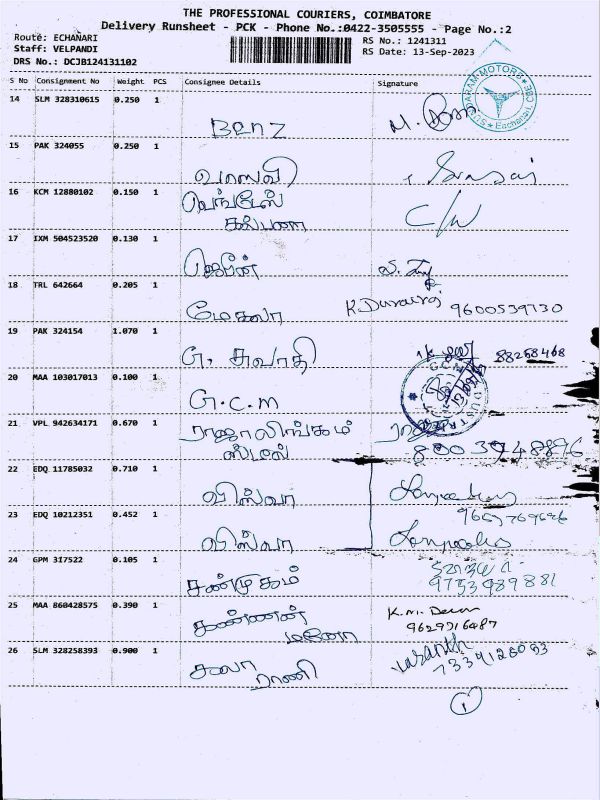 THE PROFESSIONAL COURIERS, COIMBATORE
Delivery Runsheet - PCK - Phone No.:0422-3505555 - Page No.:2
Route: ECHANARI
RS No.: 1241311
Staff: VELPANDI
RS Date: 13-Sep-2023
DRS No.: DCJB124131102
S No Consignment No Weight PCS Consignee Details Signature
14 SLM 328310615 0.250 1
BENZ M.
ARAM MOTORS
Eachanari
15 PAK 324055 0.250 1
வாஸவி
16 KCM 12880102 0.150 1
வெங்டேஸ்
கல்பனா C/W
17 IXM 504523520 0.130 1
ஜெபீன்
18 TRL 642664 0.205 1
மேகலா K. Durairaj 9600539130
19 PAK 324154 1.070 1
G. சுவாதி 88258468
20 MAA 103017013 0.100 1
G.C.M
21 VPL 942634171 0.670 1
ராஜாலிங்கம்
ஸ்டீல்ஸ் 8003948896
22 EDQ 11785032 0.710 1
விஸ்வா
23 EDQ 10212351 0.452 1
விஸ்வா
24 GPM 317522 0.105 1
சண்முகம் 9753989881
25 MAA 860428575 0.390 1
கண்ணன் K.M.
மனோ 9629716487
26 SLM 328258393 0.900 1
கலா
ராணி 7339126093
1